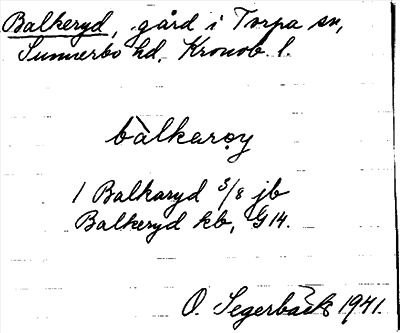 Balkeryd, gård i Torpa sn,
Sunnerbo hd, Kronob. l.
bàlkarøy
1 Balkaryd 3/8 jb
Balkeryd kb, G14.
O. Segerbäck 1941.